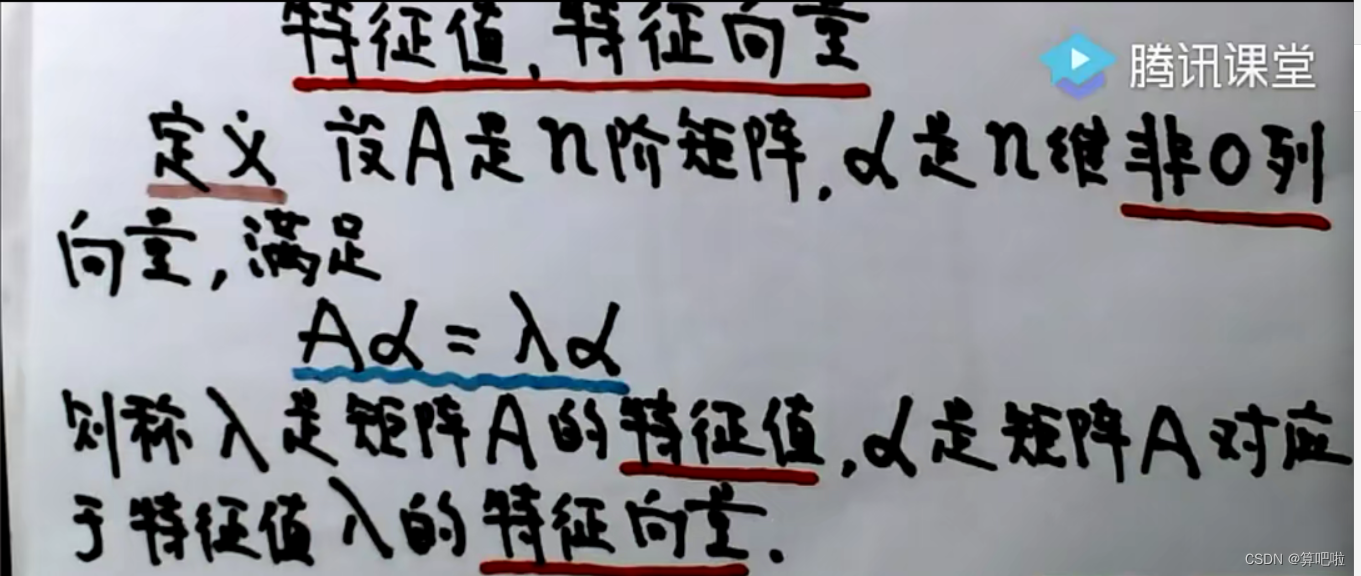 特征值,特征向量
腾讯课堂
定义 设A是n阶矩阵,α是n维非0列
向量,满足
Aα=λα
则称λ是矩阵A的特征值,α是矩阵A对应
于特征值λ的特征向量.
CSDN @算吧啦